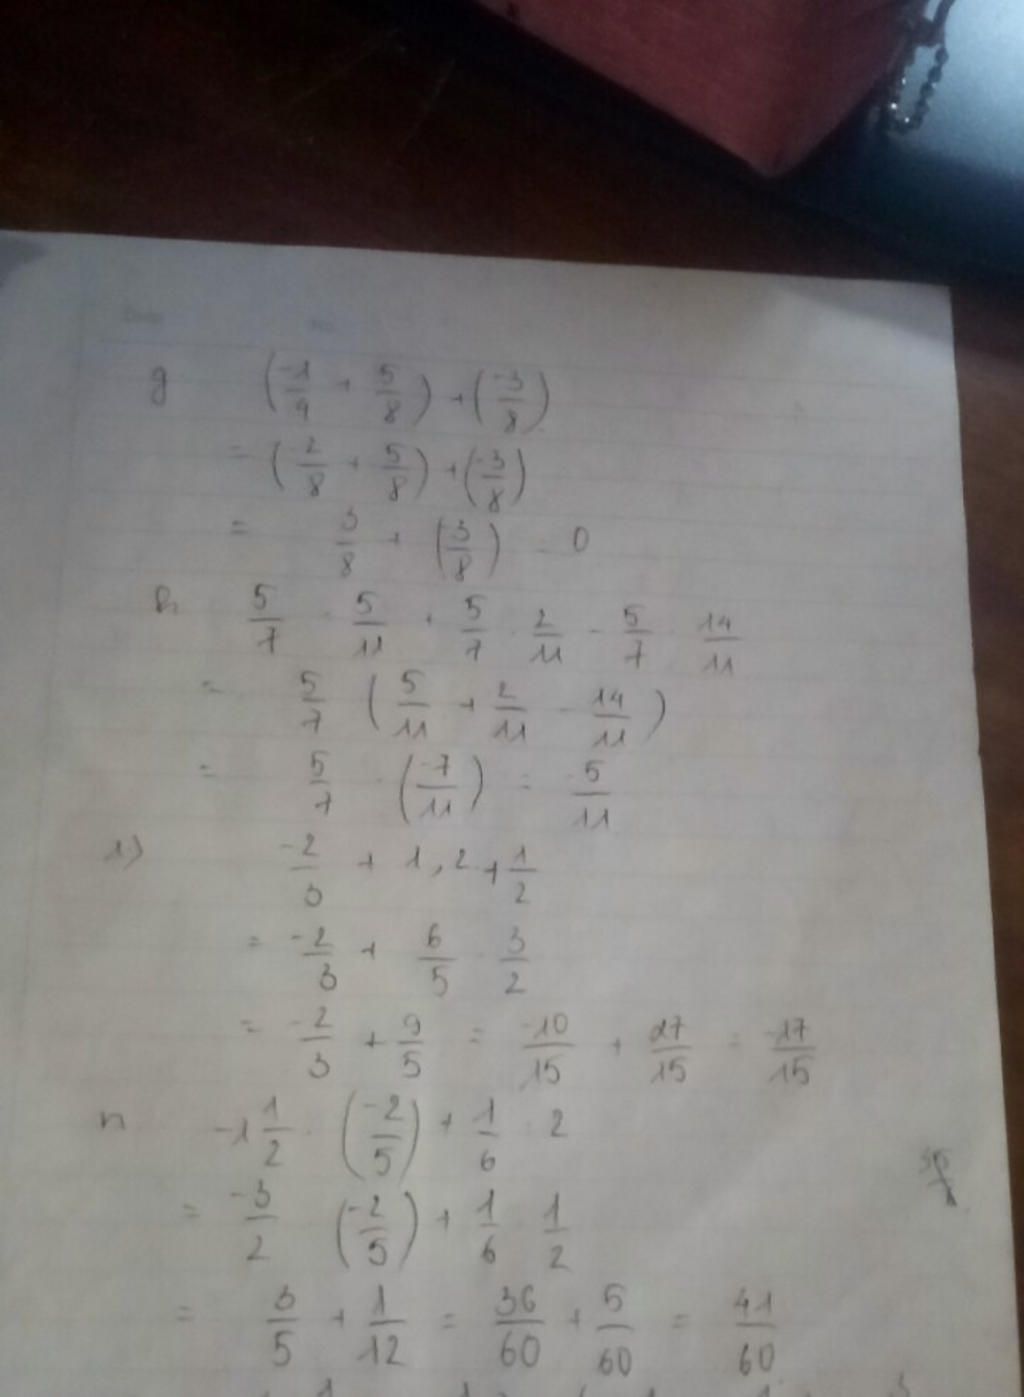 g (-1/4 + 5/8) + (-3/8)
= (-2/8 + 5/8) + (-3/8)
= 3/8 + (-3/8) = 0
h, 5/7 . 5/11 + 5/7 . 2/11 - 5/7 . 14/11
= 5/7 (5/11 + 2/11 - 14/11)
= 5/7 . (-7/11) = -5/11
1) -2/3 + 1,2 + 1/2
= -2/3 + 6/5 . 3/2
= -2/3 + 9/5 = -10/15 + 27/15 = -17/15
n -1 1/2 . (-2/5) + 1/6 : 2
= -3/2 (-2/5) + 1/6 . 1/2
= 3/5 + 1/12 = 36/60 + 5/60 = 41/60